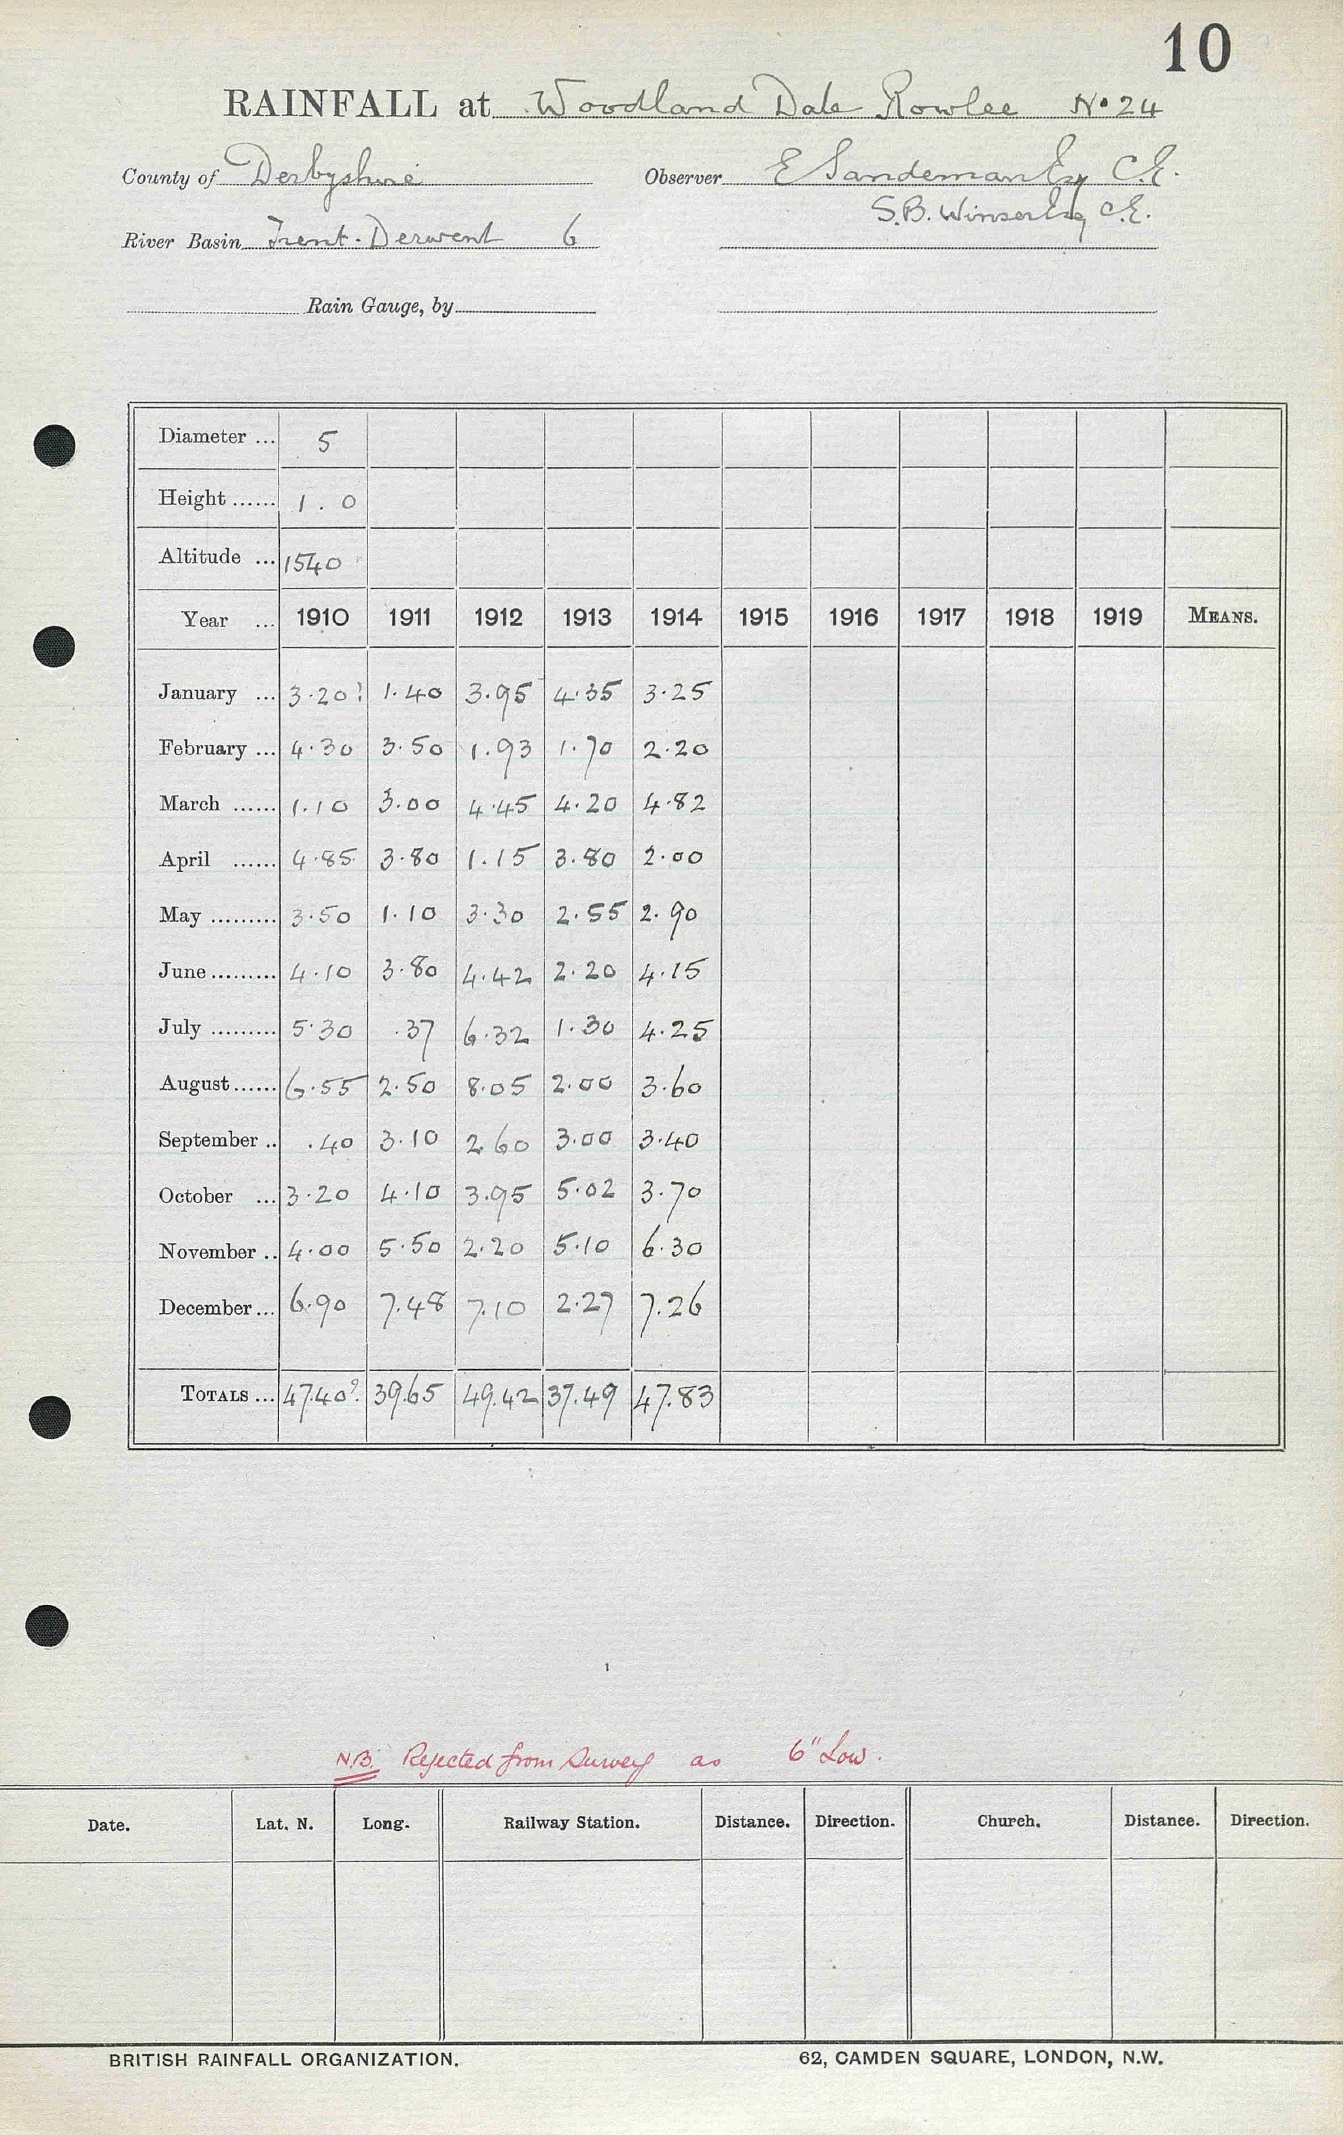 10
RAINFALL at Woodland Dale Rowlee No 24
County of Derbyshire Observer E Sandeman Esq C.E.
S.B. Winser Esq C.E.
River Basin Trent. Derwent 6
Rain Gauge, by
Diameter ... 5
Height ...... 1.0
Altitude ... 1540
Year ... 1910 1911 1912 1913 1914 1915 1916 1917 1918 1919 MEANS.
January ... 3.20? 1.40 3.95 4.35 3.25
February ... 4.30 3.50 1.93 1.70 2.20
March ...... 1.10 3.00 4.45 4.20 4.82
April ...... 4.85 3.80 1.15 3.80 2.00
May ......... 3.50 1.10 3.30 2.55 2.90
June ......... 4.10 3.80 4.42 2.20 4.15
July ......... 5.30 .37 6.32 1.30 4.25
August ...... 6.55 2.50 8.05 2.00 3.60
September .. .40 3.10 2.60 3.00 3.40
October ... 3.20 4.10 3.95 5.02 3.70
November .. 4.00 5.50 2.20 5.10 6.30
December ... 6.90 7.48 7.10 2.27 7.26
TOTALS ... 47.40?. 39.65 49.42 37.49 47.83
N.B. Rejected from Survey as 6" Low.
Date. Lat. N. Long. Railway Station. Distance. Direction. Church. Distance. Direction.
BRITISH RAINFALL ORGANIZATION. 62, CAMDEN SQUARE, LONDON, N.W.